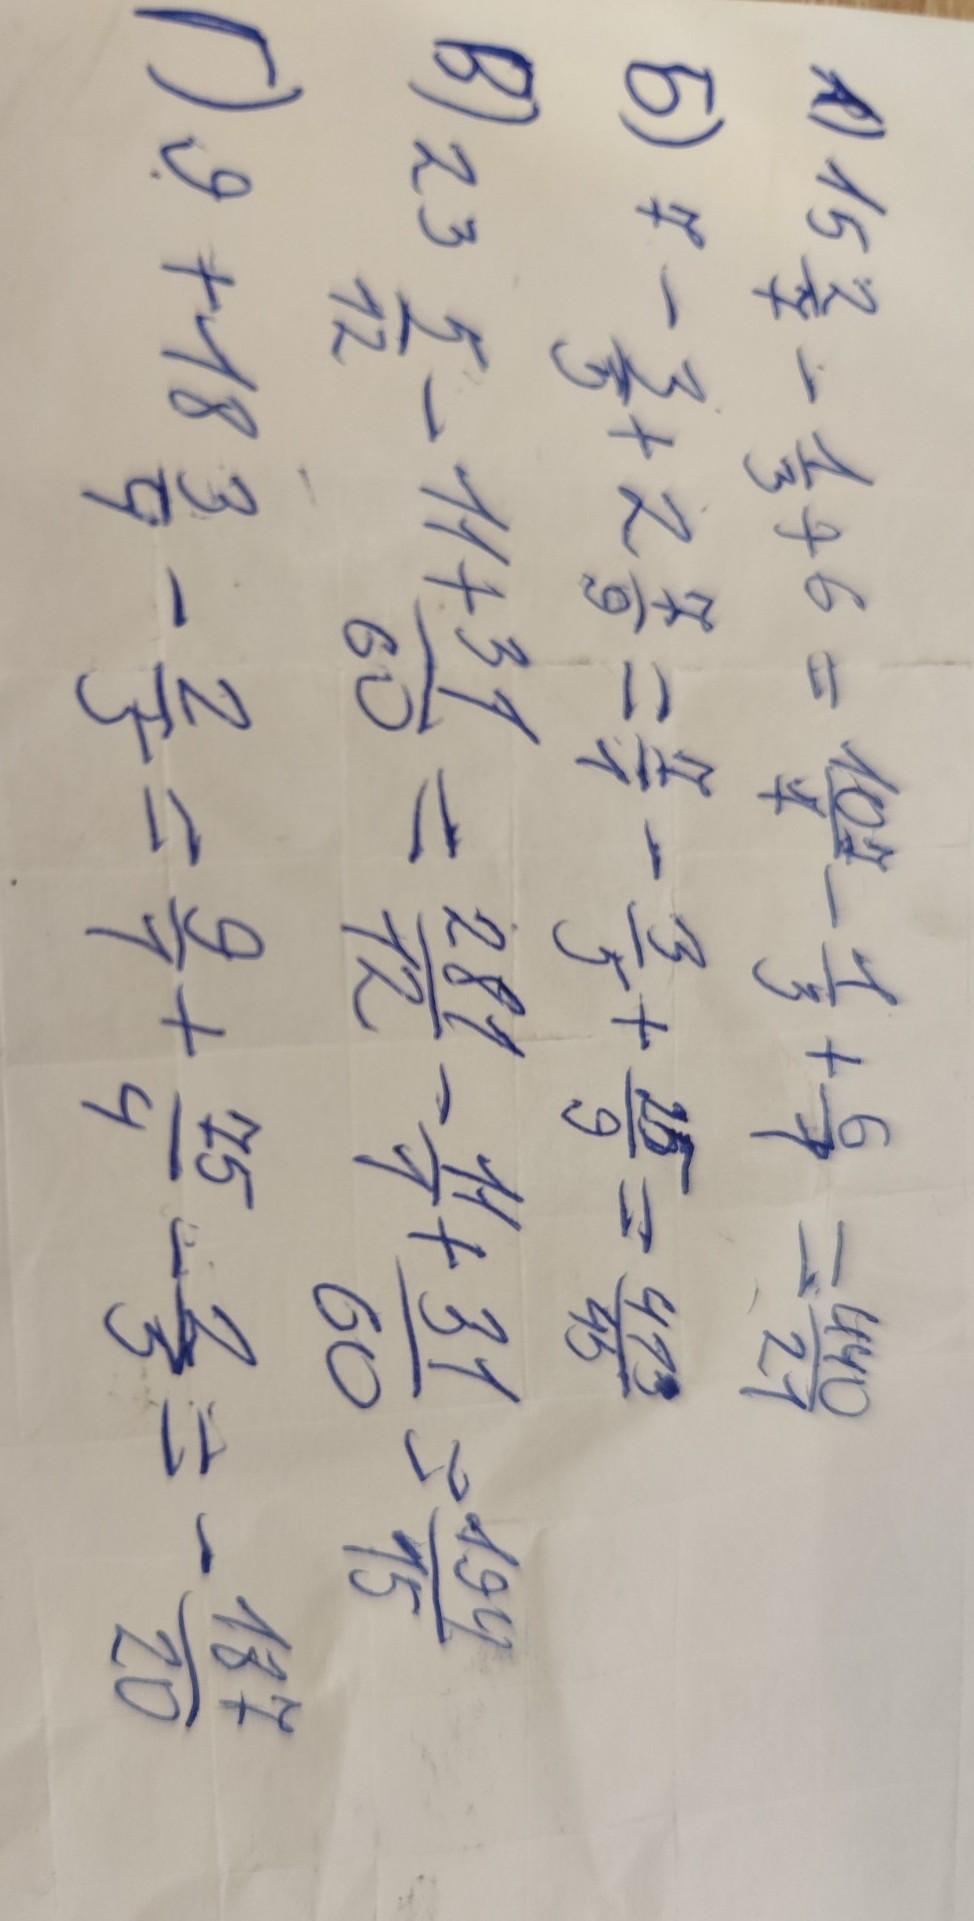 А) 15 2/7 - 1/3 + 6 = 107/7 - 1/3 + 6/1 = 440/21
Б) 7 - 3/5 + 2 7/9 = 7/1 - 3/5 + 25/9 = 413/45
В) 23 5/12 - 11 + 31/60 = 281/12 - 11/1 + 31/60 = 194/15
Г) 9 + 18 3/4 - 2/5 = 9/1 + 75/4 - 2/5 = - 187/20